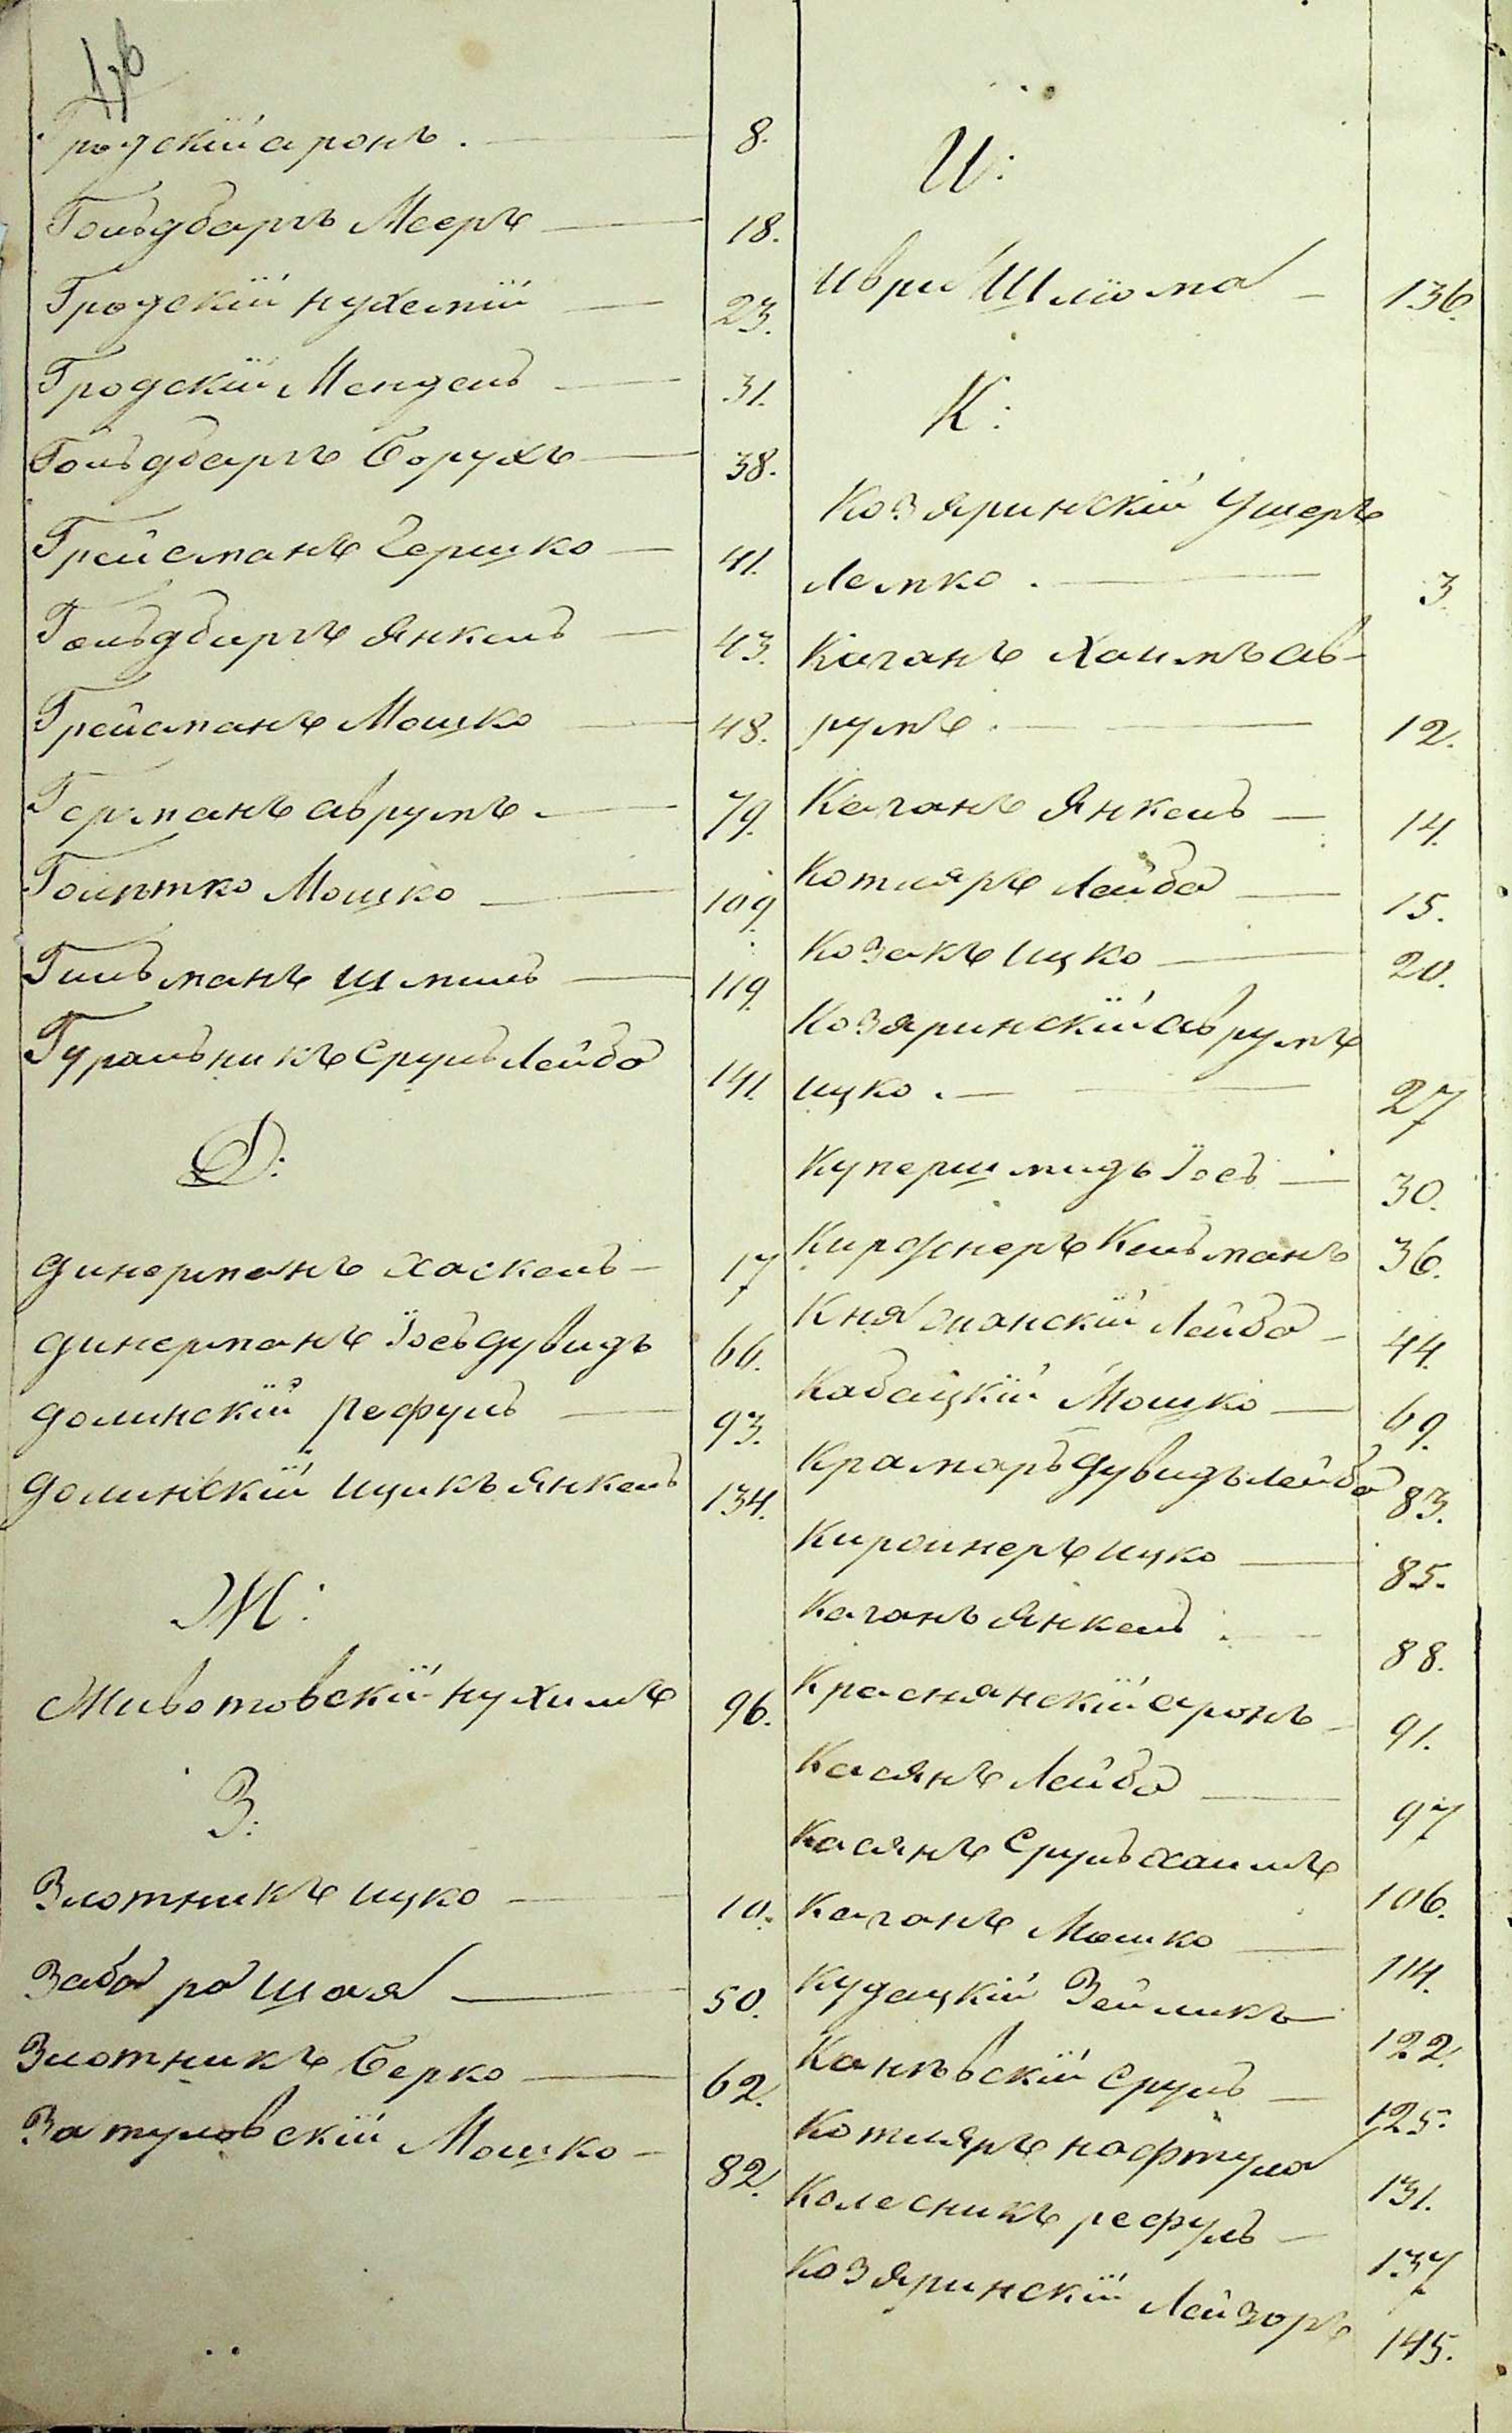 Гродскій аронъ. 8.
Гольдбаргъ Мееръ 18.
Гродскій нухемій 23.
Гродскій Мендель 31.
Гольдбаргъ Борухъ 38.
Грейсманъ Гершко 41.
Гольдбаргъ Янкель 43.
Грейсманъ Мошко 48.
Германъ аврумъ 79.
Мошко 109.
Гильманъ Шмиль 119.
Гуральникъ Сруль Лейба 141.
Д:
динерманъ Хаскель 17
динерманъ Іось дувидъ 66.
долинскій Рефуль 93.
долинскій Ицикъ Янкель 134.
Ж:
Животовскій нухимъ 96.
З:
Злотникъ ицко 10.
Забара Шая 50.
Злотникъ Берко 62.
Затуловскій Мошко 82.
И:
Иври Шліома 136.
К:
Козяринскій Ушеръ
Лемко. 3
Каганъ Хаимъ ав-
румъ. 12.
Каганъ Янкель 14.
Котляръ Лейба 15.
Козакъ ицко 20.
Козяринскій аврумъ
ицко. 27
Купершмидъ Іось 30.
Киржнеръ Кельманъ 36.
Лейба 44.
Кабацкій Мошко 69.
Крамаръ дувидъ Лейба 83.
Киржнеръ ицко 85.
Каганъ Янкель 88.
Краснянскій аронъ 91.
Касянъ Лейба 97
Касянъ Сруль хаимъ 106.
Каганъ Мошко 114.
Кудацкій Зейликъ 122.
Каневскій Сруль 125.
Котляръ нафтула 131.
Колесникъ рефуль 137
Козяринскій Лейзоръ 145.